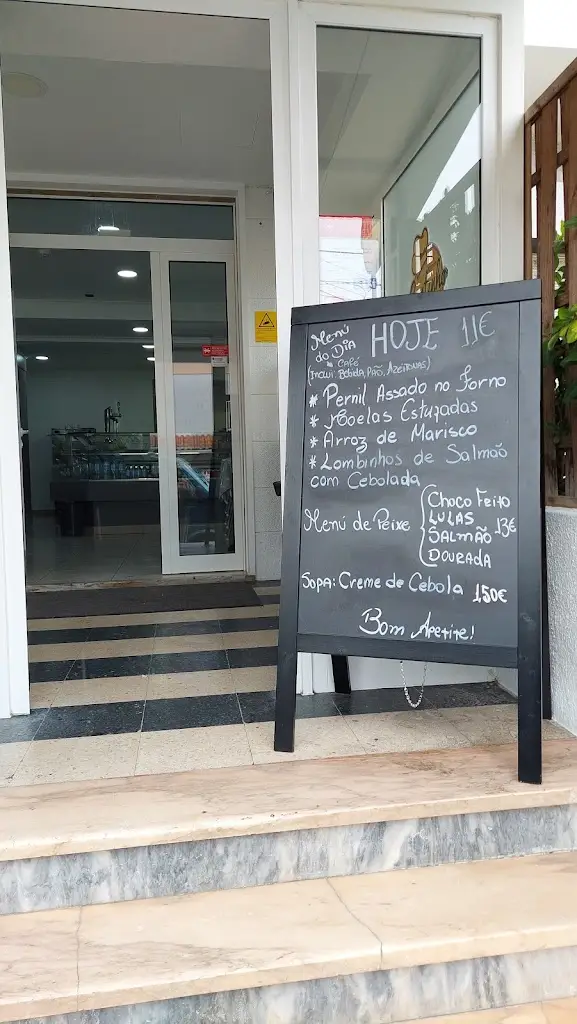 Menú do DIA HOJE 11€
* CAFÉ
(INCLUI: BEBIDA, PÃO, AZEITONAS)
* Pernil Assado no Forno
* Moelas Estufadas
* Arroz de Marisco
* Lombinhos de Salmão
com Cebolada
Menú de Peixe
Choco Feito
LULAS
SALMÃO 13€
DOURADA
SOPA: Creme de Cebola 1,50€
Bom Apetite!